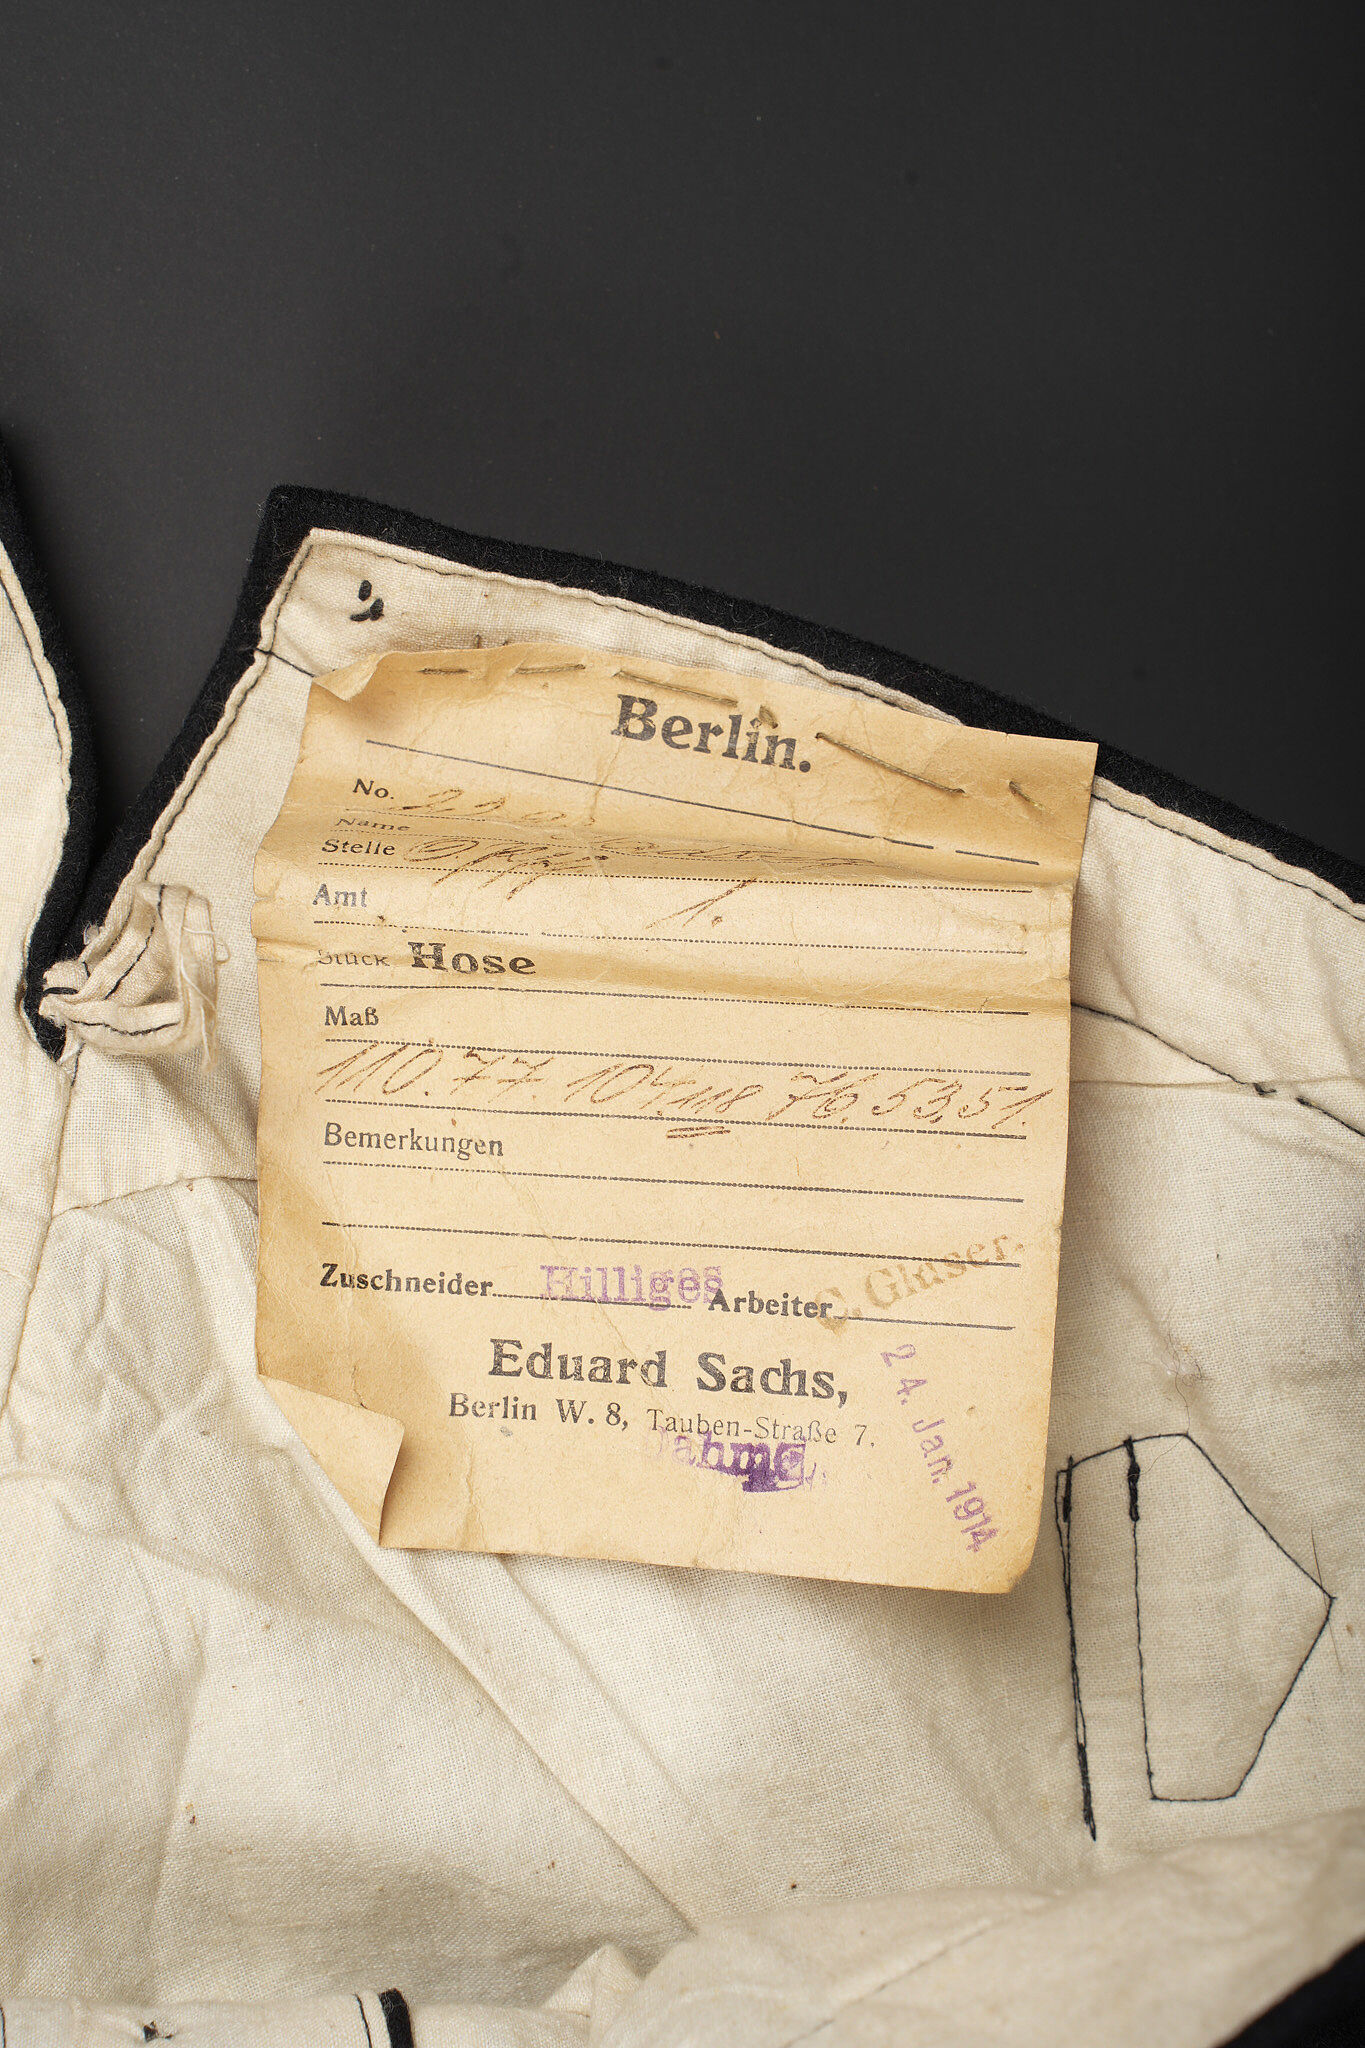 Berlin.
No.
Name
Stelle
Amt 1.
Stück Hose
Maß
110. 77. 104. 118 76. 53. 51.
Bemerkungen
Zuschneider Hilliges Arbeiter C. Glaser.
Eduard Sachs,
Berlin W. 8, Tauben-Straße 7.
24. Jan. 1914